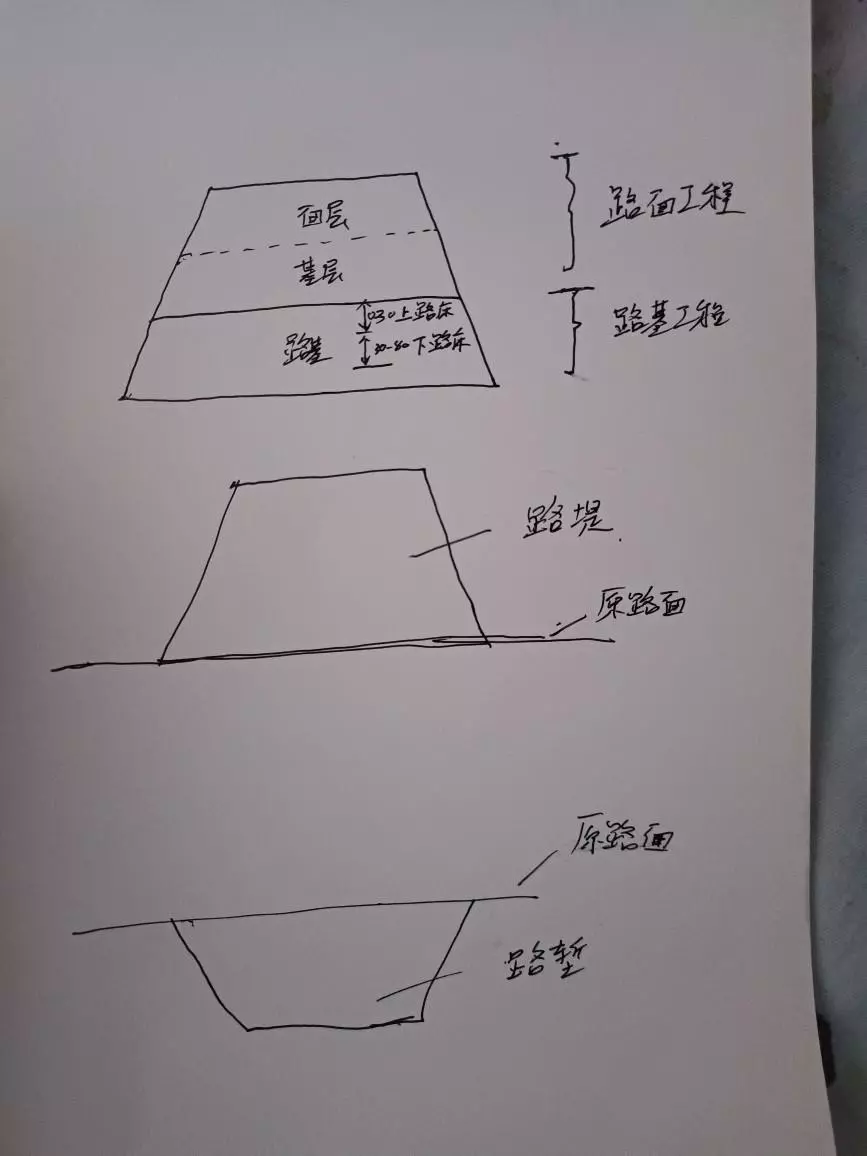 面层
路面工程
基层
030上路床
路基工程
路基
30-80下路床
路堤
原路面
原路面
路堑